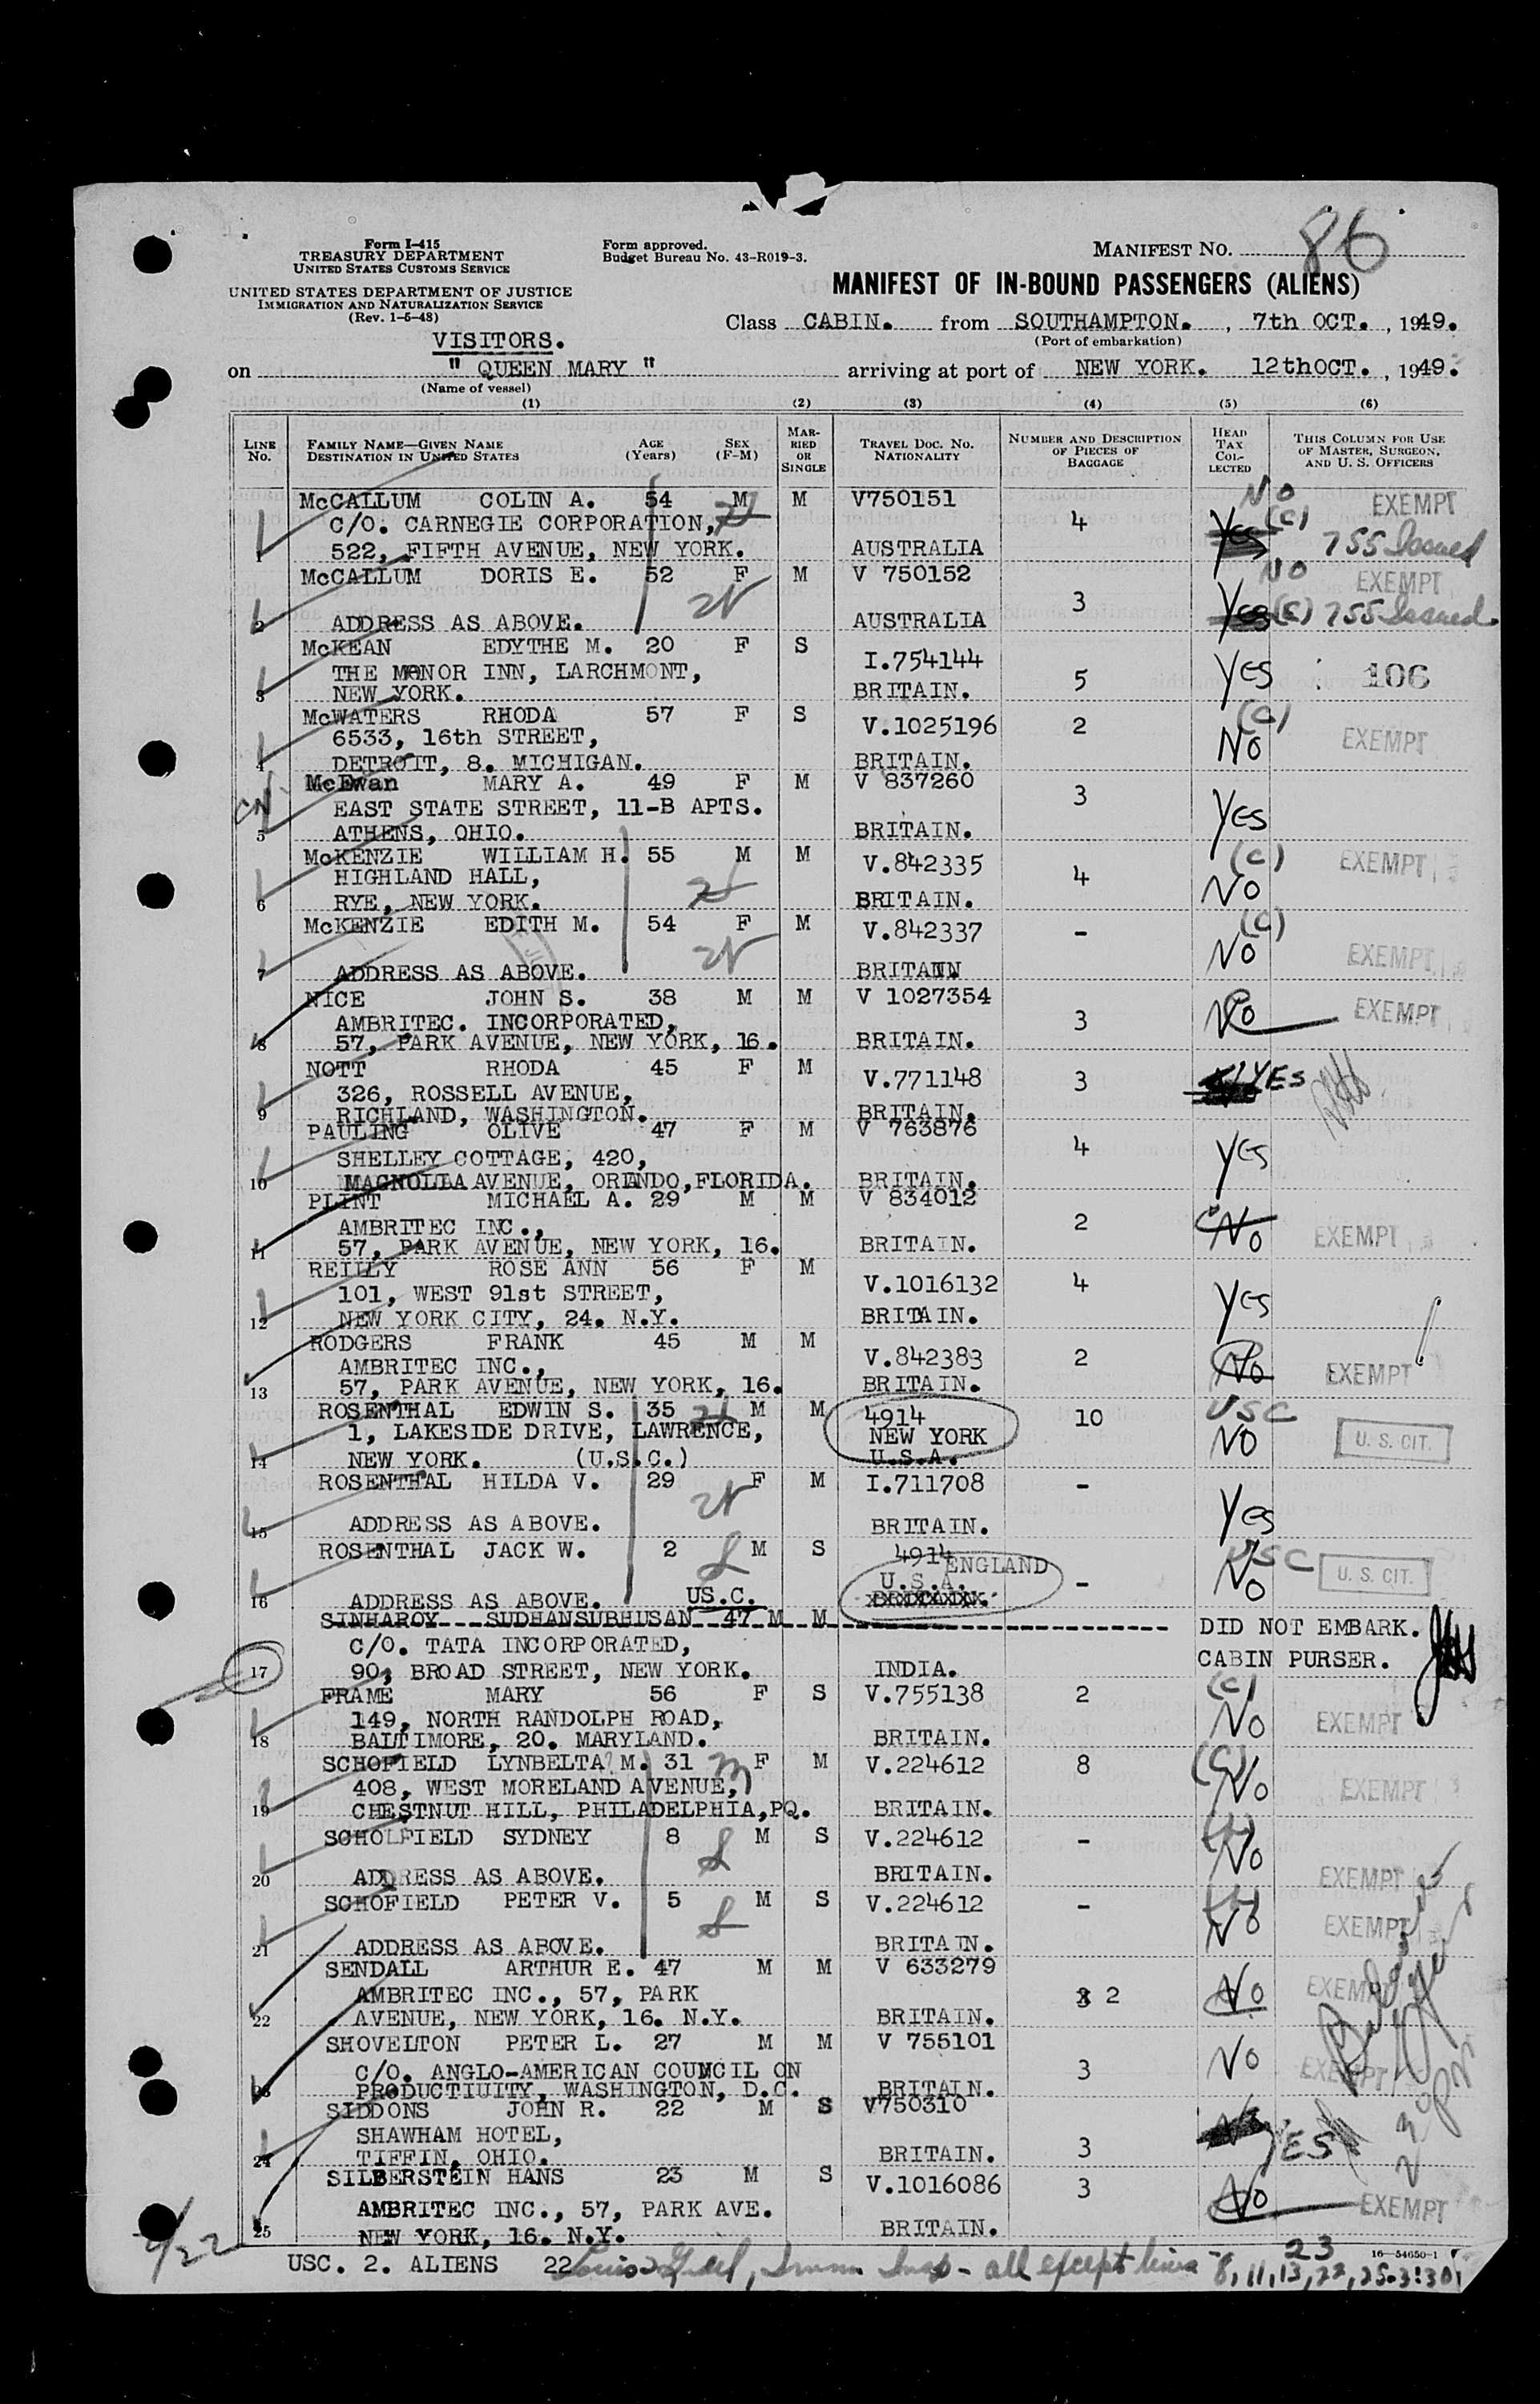 Form I-415
TREASURY DEPARTMENT
UNITED STATES CUSTOMS SERVICE
UNITED STATES DEPARTMENT OF JUSTICE
IMMIGRATION AND NATURALIZATION SERVICE
(Rev. 1-5-48)
Form approved.
Budget Bureau No. 43-R019-3.
MANIFEST NO. 86
MANIFEST OF IN-BOUND PASSENGERS (ALIENS)
Class CABIN. from SOUTHAMPTON. , 7th OCT. , 1949.
(Port of embarkation)
VISITORS.
on " QUEEN MARY " arriving at port of NEW YORK. 12thOCT. , 1949.
(Name of vessel)
(1) (2) (3) (4) (5) (6)
LINE No. FAMILY NAME—GIVEN NAME DESTINATION IN UNITED STATES AGE (Years) SEX (F-M) MARRIED OR SINGLE TRAVEL DOC. NO. NATIONALITY NUMBER AND DESCRIPTION OF PIECES OF BAGGAGE HEAD TAX COLLECTED THIS COLUMN FOR USE OF MASTER, SURGEON, AND U. S. OFFICERS
McCALLUM COLIN A. 54 M M V750151 NO EXEMPT
C/O. CARNEGIE CORPORATION, 4 Yes (C)
1 522, FIFTH AVENUE, NEW YORK. AUSTRALIA 755 Issued
McCALLUM DORIS E. 52 F M V 750152 NO EXEMPT
3 Yes (C) 755 Issued
2 ADDRESS AS ABOVE. AUSTRALIA
McKEAN EDYTHE M. 20 F S I.754144
THE MANOR INN, LARCHMONT, 5 Yes 106
3 NEW YORK. BRITAIN.
McWATERS RHODA 57 F S V.1025196 2 (C)
6533, 16th STREET, NO EXEMPT
4 DETROIT, 8. MICHIGAN. BRITAIN.
McEwan MARY A. 49 F M V 837260
EAST STATE STREET, 11-B APTS. 3 Yes
5 ATHENS, OHIO. BRITAIN.
McKENZIE WILLIAM H. 55 M M V.842335 (C) EXEMPT
HIGHLAND HALL, 4
6 RYE, NEW YORK. BRITAIN. NO
McKENZIE EDITH M. 54 F M V.842337 - (C)
NO EXEMPT
7 ADDRESS AS ABOVE. BRITAIN
NICE JOHN S. 38 M M V 1027354
AMBRITEC. INCORPORATED, 3 No EXEMPT
8 57, PARK AVENUE, NEW YORK, 16. BRITAIN.
NOTT RHODA 45 F M V.771148 3 YES
326, ROSSELL AVENUE,
9 RICHLAND, WASHINGTON. BRITAIN.
PAULING OLIVE 47 F M V 763876
SHELLEY COTTAGE, 420, 4 Yes
10 MAGNOLIA AVENUE, ORLANDO, FLORIDA. BRITAIN.
PLINT MICHAEL A. 29 M M V 834012
AMBRITEC INC., 2 No EXEMPT
11 57, PARK AVENUE, NEW YORK, 16. BRITAIN.
REILLY ROSE ANN 56 F M V.1016132 4
101, WEST 91st STREET, Yes
12 NEW YORK CITY, 24. N.Y. BRITAIN.
RODGERS FRANK 45 M M V.842383 2
AMBRITEC INC., No EXEMPT
13 57, PARK AVENUE, NEW YORK, 16. BRITAIN.
ROSENTHAL EDWIN S. 35 M M 4914 10 USC
1, LAKESIDE DRIVE, LAWRENCE, NEW YORK NO U. S. CIT.
14 NEW YORK. (U.S.C.) U.S.A.
ROSENTHAL HILDA V. 29 F M I.711708 -
Yes
15 ADDRESS AS ABOVE. BRITAIN.
ROSENTHAL JACK W. 2 M S 4914 ENGLAND USC
U.S.A. - No U. S. CIT.
16 ADDRESS AS ABOVE. US.C. XXXXXXX.
SINHAROY SUDHANSUBHUSAN 47 M M DID NOT EMBARK.
C/O. TATA INCORPORATED,
17 90, BROAD STREET, NEW YORK. INDIA. CABIN PURSER.
FRAME MARY 56 F S V.755138 2 (C)
149, NORTH RANDOLPH ROAD, No EXEMPT
18 BALTIMORE, 20. MARYLAND. BRITAIN.
SCHOFIELD LYNBELTA? M. 31 F M V.224612 8 (C)
408, WEST MORELAND AVENUE, No EXEMPT
19 CHESTNUT HILL, PHILADELPHIA, PQ. BRITAIN.
SCHOLFIELD SYDNEY 8 M S V.224612 -
No
20 ADDRESS AS ABOVE. BRITAIN. EXEMPT
SCHOFIELD PETER V. 5 M S V.224612 -
No EXEMPT
21 ADDRESS AS ABOVE. BRITAIN.
SENDALL ARTHUR E. 47 M M V 633279
AMBRITEC INC., 57, PARK 2 No EXEMPT
22 AVENUE, NEW YORK, 16. N.Y. BRITAIN.
SHOVELTON PETER L. 27 M M V 755101
C/O. ANGLO-AMERICAN COUNCIL ON 3 No EXEMPT
23 PRODUCTIUITY, WASHINGTON, D.C. BRITAIN.
SIDDONS JOHN R. 22 M S V750310
SHAWHAM HOTEL, YES
24 TIFFIN, OHIO. BRITAIN. 3
SILBERSTEIN HANS 23 M S V.1016086 3
AMBRITEC INC., 57, PARK AVE. No EXEMPT
25 NEW YORK, 16. N.Y. BRITAIN.
USC. 2. ALIENS 22 all except lines 8, 11, 13, 22, 23, 25
16—54650-1